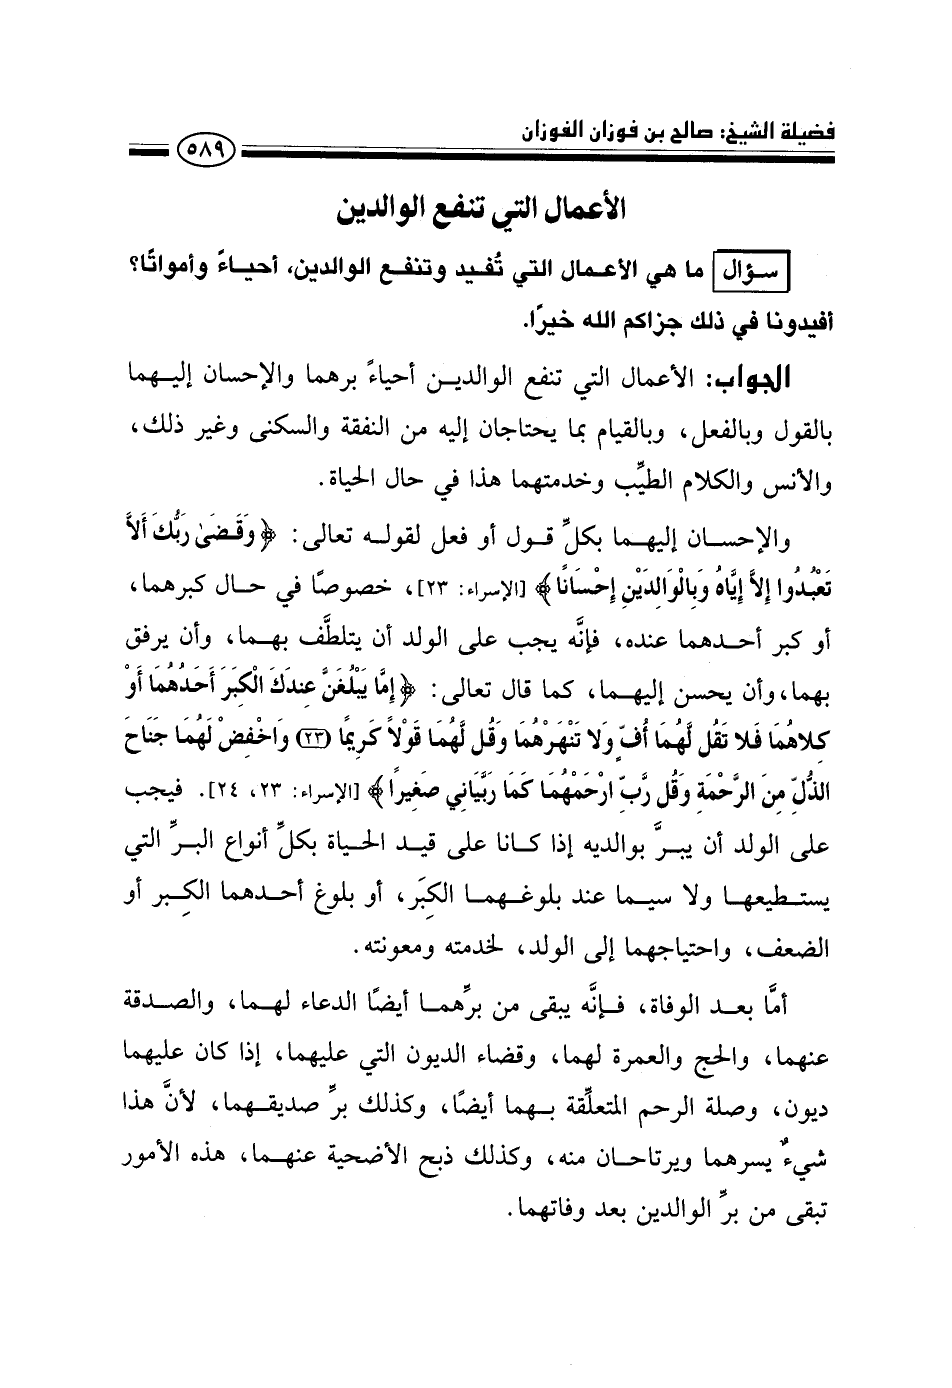 فضيلة الشيخ: صالح بن فوزان الفوزان
٥٨٩
الأعمال التي تنفع الوالدين
سؤال ما هي الأعمال التي تُفيد وتنفع الوالدين، أحياءً وأمواتًا؟
أفيدونا في ذلك جزاكم الله خيرًا.
الجواب: الأعمال التي تنفع الوالدين أحياءً برهما والإحسان إليهما
بالقول وبالفعل، وبالقيام بما يحتاجان إليه من النفقة والسكنى وغير ذلك،
والأنس والكلام الطيِّب وخدمتهما هذا في حال الحياة.
والإحسان إليهما بكلِّ قول أو فعل لقوله تعالى: ﴿وَقَضَىٰ رَبُّكَ أَلاَّ
تَعْبُدُوا إِلاَّ إِيَّاهُ وَبِالْوَالِدَيْنِ إِحْسَانًا﴾ [الإسراء: ٢٣]، خصوصًا في حال كبرهما،
أو كبر أحدهما عنده، فإنَّه يجب على الولد أن يتلطَّف بهما، وأن يرفق
بهما، وأن يحسن إليهما، كما قال تعالى: ﴿إِمَّا يَبْلُغَنَّ عِندَكَ الْكِبَرَ أَحَدُهُمَا أَوْ
كِلاهُمَا فَلا تَقُل لَّهُمَا أُفٍّ وَلا تَنْهَرْهُمَا وَقُل لَّهُمَا قَوْلاً كَرِيمًا (٢٣) وَاخْفِضْ لَهُمَا جَنَاحَ
الذُّلِّ مِنَ الرَّحْمَةِ وَقُل رَّبِّ ارْحَمْهُمَا كَمَا رَبَّيَانِي صَغِيرًا﴾ [الإسراء: ٢٣، ٢٤]. فيجب
على الولد أن يبرَّ بوالديه إذا كانا على قيد الحياة بكلِّ أنواع البرِّ التي
يستطيعها ولا سيما عند بلوغهما الكِبَر، أو بلوغ أحدهما الكِبر أو
الضعف، واحتياجهما إلى الولد، لخدمته ومعونته.
أمَّا بعد الوفاة، فإنَّه يبقى من برِّهما أيضًا الدعاء لهما، والصدقة
عنهما، والحج والعمرة لهما، وقضاء الديون التي عليهما، إذا كان عليهما
ديون، وصلة الرحم المتعلِّقة بهما أيضًا، وكذلك برِّ صديقهما، لأنَّ هذا
شيءٌ يسرهما ويرتاحان منه، وكذلك ذبح الأضحية عنهما، هذه الأمور
تبقى من برِّ الوالدين بعد وفاتهما.